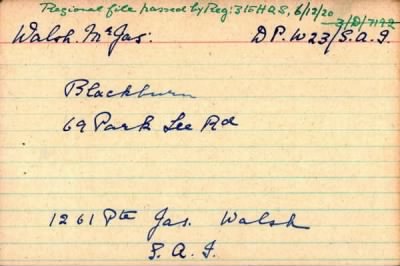 Regional file passed by Reg: 3 I E H Q S, 6/12/20
3/D/7192
Walsh. Mr Jas: D P. W 23/S. A. I.
Blackburn
69 Park Lee Rd
1261 Pte Jas. Walsh
S. A. I.